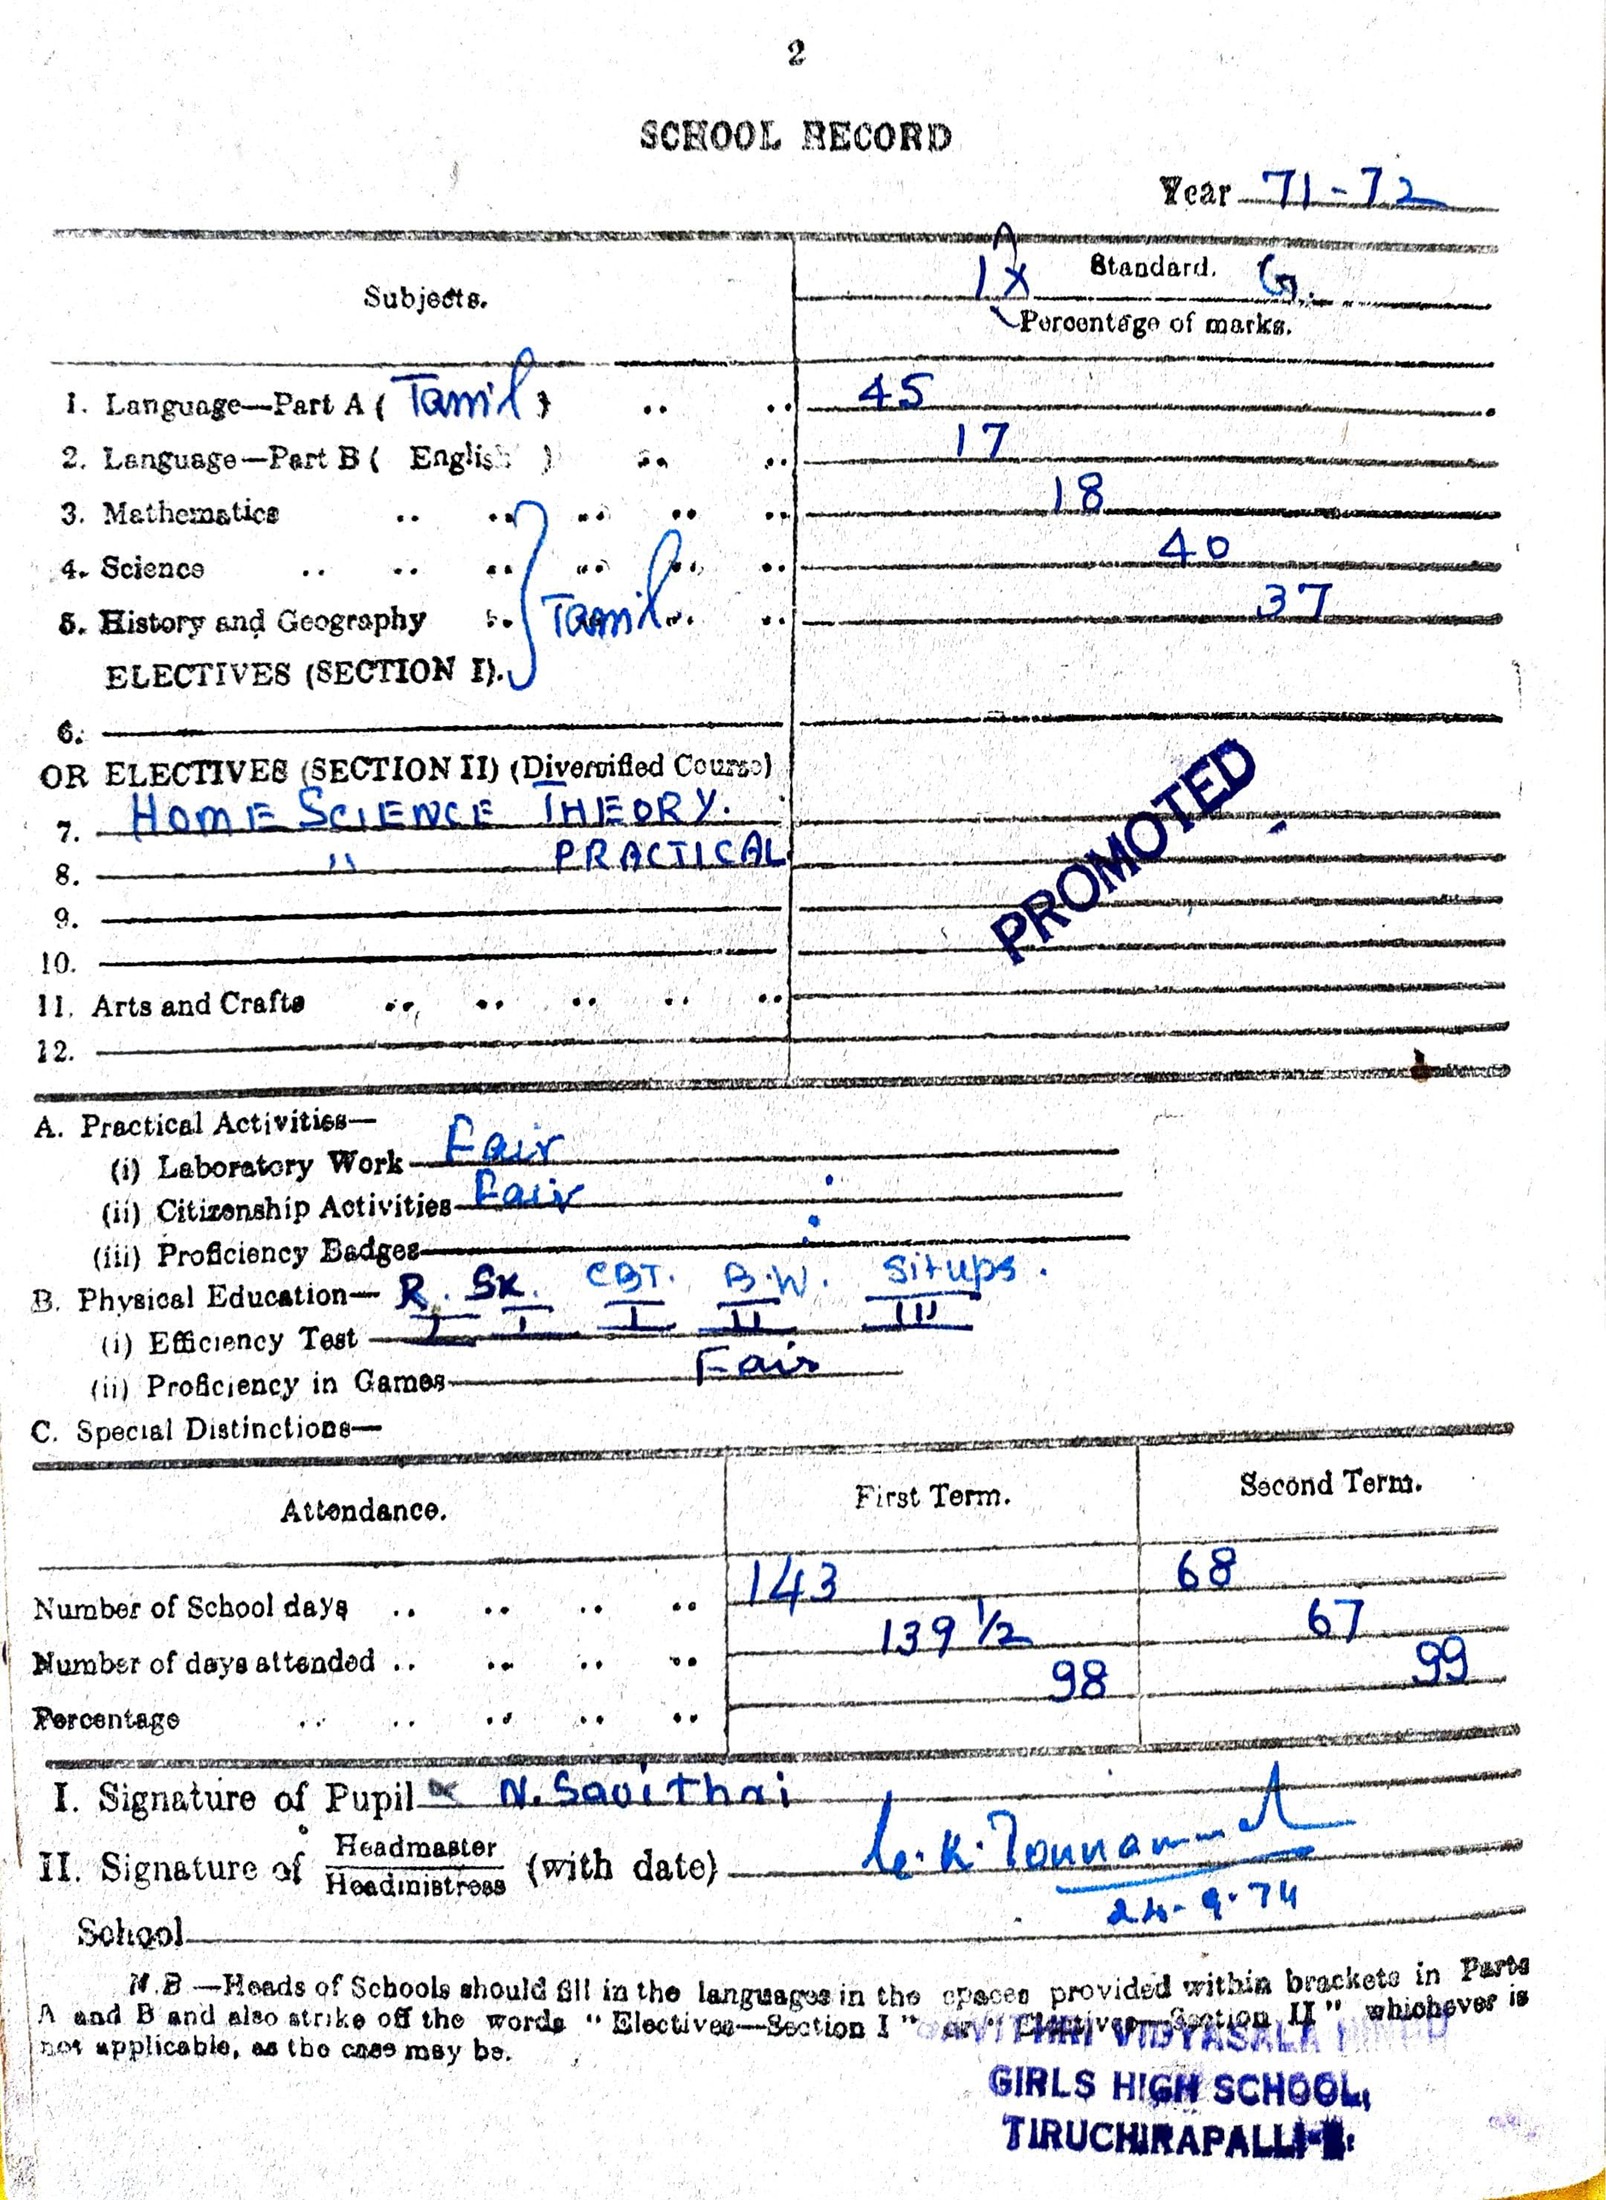 2
SCHOOL RECORD
Year 71-72
Subjects.
IX Standard. G.
Percentage of marks.
1. Language—Part A ( Tamil ) .. .. 45
2. Language—Part B ( English ) .. .. 17
3. Mathematics .. .. .. .. .. 18
4. Science .. .. .. .. .. .. 40
5. History and Geography .. Tamil .. .. 37
ELECTIVES (SECTION I).
6.
OR ELECTIVES (SECTION II) (Diversified Course)
7. HOME SCIENCE THEORY.
8. " PRACTICAL
9.
10.
PROMOTED
11. Arts and Crafts .. .. .. .. ..
12.
A. Practical Activities—
(i) Laboratory Work Fair
(ii) Citizenship Activities Fair
(iii) Proficiency Badges
B. Physical Education— R. SK. CBT. B.W. Situps.
(i) Efficiency Test I I I II III
(ii) Proficiency in Games Fair
C. Special Distinctions—
Attendance. First Term. Second Term.
Number of School days .. .. .. .. 143 68
Number of days attended .. .. .. .. 139 1/2 67
Percentage .. .. .. .. .. 98 99
I. Signature of Pupil N. Savithri
II. Signature of Headmaster
Headmistress (with date)
24-9-74
School
N.B—Heads of Schools should fill in the languages in the spaces provided within brackets in Parts
A and B and also strike off the words "Electives—Section I" or "Electives—Section II" whichever is
not applicable, as the case may be.
VIDYASALA
GIRLS HIGH SCHOOL,
TIRUCHIRAPALLI